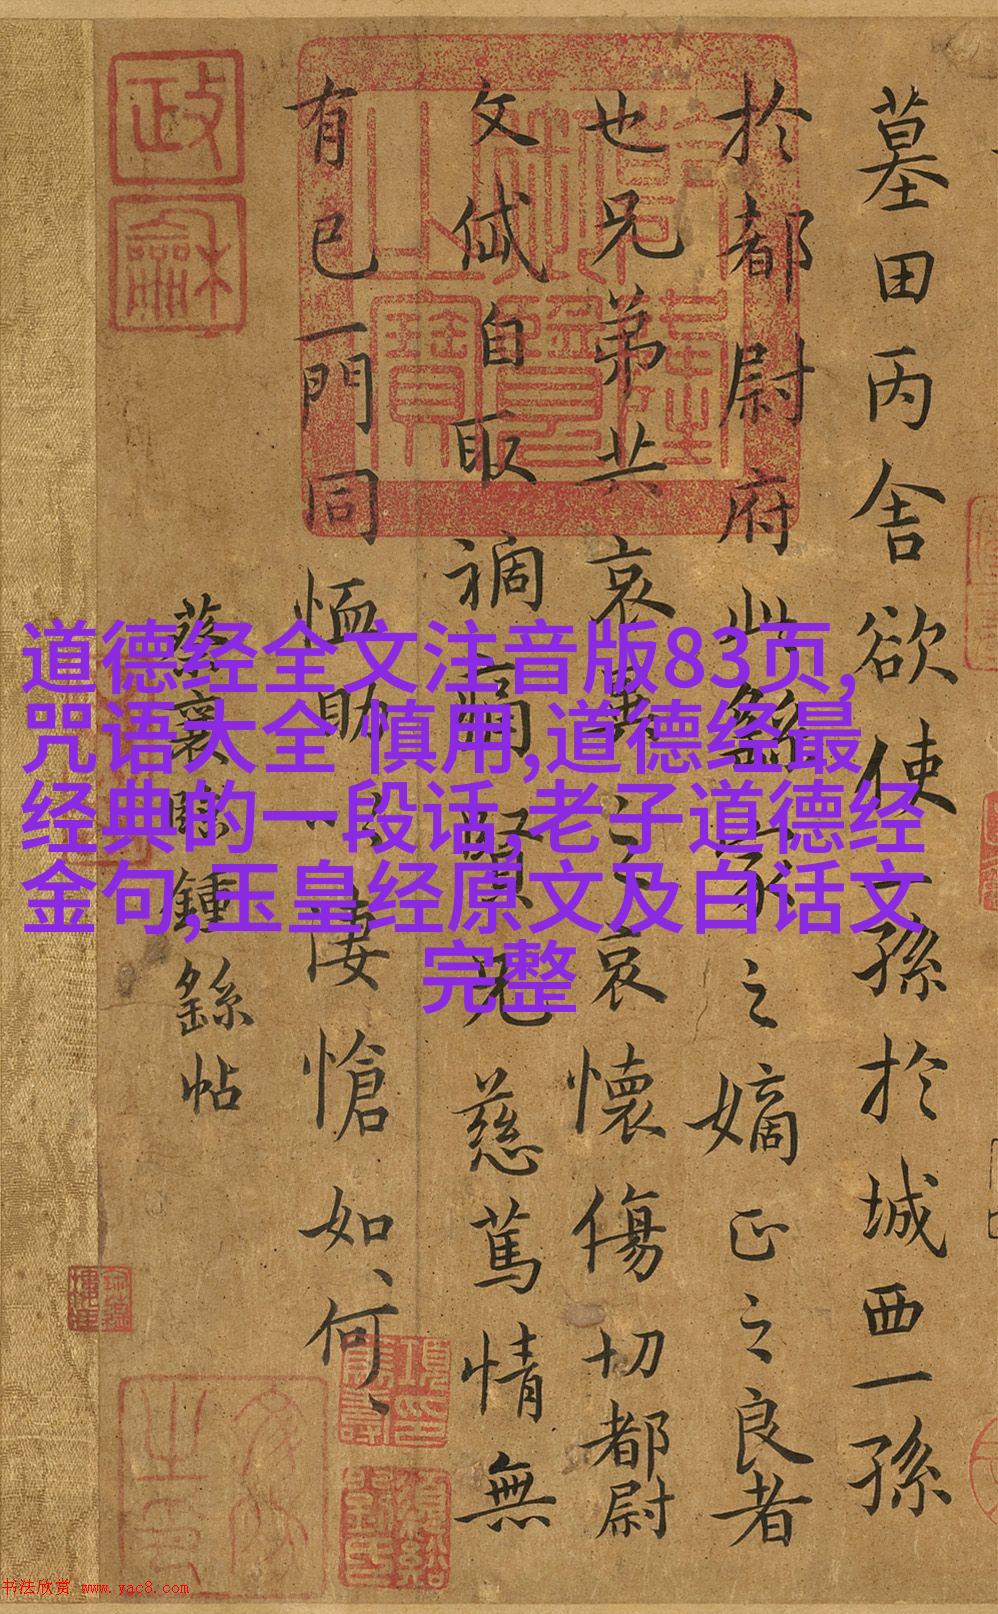 道德经全文注音版83页,
咒语大全 慎用,道德经最
经典的一段话,老子道德经
金句,玉皇经原文及白话文
完整
墓田丙舍欲使一孫於城西一孫
於都尉府此繇家之嫡正之良者
也兄弟共哀異之哀懷傷切都尉
文岱自取禍痛賢兄慈篤情無
有已一門同恤助以悽愴如何
蔡襄臨鍾繇帖
政
龢
书法欣赏 www.yac8.com